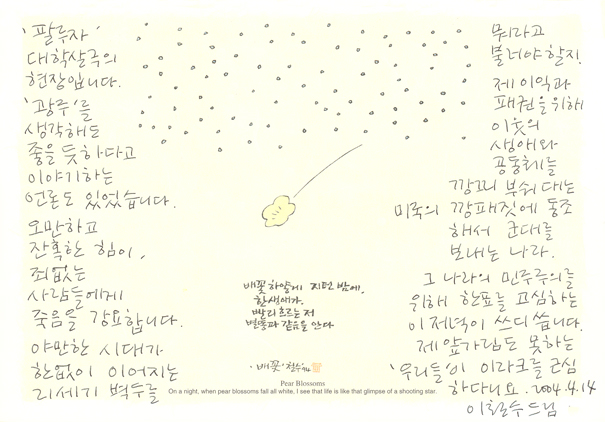 '팔루자'
대학살극의
현장입니다.
'광주'를
생각해도
좋을 듯하다고
이야기하는
언론도 있었습니다.
오만하고
잔혹한 힘이,
죄없는
사람들에게
죽음을 강요합니다.
야만한 시대가
한없이 이어지는
21세기 벽두를
배꽃 하얗게 지던 밤에,
한 생애가,
빨리 흐르는 저
별똥과 같음을 안다
·배꽃' 철수94
Pear Blossoms
On a night, when pear blossoms fall all white, I see that life is like that glimpse of a shooting star.
뭐라고
불러야 할지.
제 이익과
패권을 위해
이웃의
생애와
공동체를
깡그리 부숴 대는
미국의 깡패짓에 동조
해서 군대를
보내는 나라.
그 나라의 민주주의를
위해 한표를 고심하는
이 저녁이 쓰디 씁니다.
제 앞가림도 못하는
'우리들'이 이라크를 근심
하다니요. 2004.4.14
이철수 드림